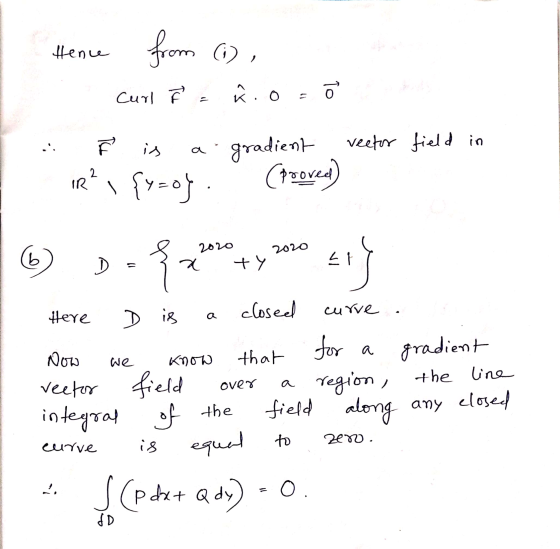 Hence from (i),
Curl F⃗ = k̂ . 0 = 0⃗
∴ F⃗ is a gradient vector field in
ℝ² \ {y=0}. (Proved)
(b) D = {x²⁰²⁰ + y²⁰²⁰ ≤ 1}
Here D is a closed curve.
Now we know that for a gradient
vector field over a region, the line
integral of the field along any closed
curve is equal to zero.
∴ ∫_{∂D} (P dx + Q dy) = 0.